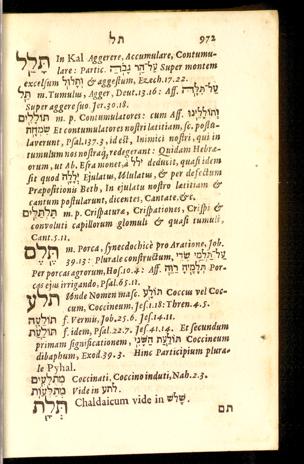 תל 972
תָּלַל In Kal Aggerere, Accumulare, Contumu-
lare: Partic. עַל־הַר גָּבֹהַּ Super montem
excelsum וְתָלוּל & aggestum, Ezech.17.22.
תֵּל m. Tumulus, Agger, Deut.13.16: Aff. עַל־תִּלָּהּ
Super aggere suo. Jer.30.18.
תּוֹלָלִים m. p. Contumulatores: cum Aff. וְתוֹלָלֵינוּ
שִׂמְחָה Et contumulatores nostri lætitiam, sc. postu-
laverunt, Psal.137.3, id est, Inimici nostri, qui in
tumulum nos nostraq; redegerant: Quidam Hebræ-
orum, ut Ab. Esra monet, à יְלֵל deducit, quasi idem
sit quod יְלָלָה Ejulatus, Ululatus, & per defectum
Præpositionis Beth, In ejulatu nostro lætitiam &
cantum postularunt, dicentes, Cantate, &c.
תַּלְתַּלִּים m. p. Crispaturæ, Crispationes, Crispi &
convoluti capillorum glomuli & quasi tumuli,
Cant.5.11.
תֶּלֶם m. Porca, synecdochicè pro Aratione, Job.
39.13: Plurale constructum, עַל־תַּלְמֵי שָׂדַי
Per porcas agrorum, Hos.10.4: Aff. תְּלָמֶיהָ רַוֵּה Por-
cas ejus irrigando. Psal.65.11.
תלע Unde Nomen masc. תּוֹלָע Coccus vel Coc-
cum, Coccineum, Jes.1.18: Thren.4.5.
תּוֹלֵעָה f. Vermis, Job.25.6. Jes.14.11.
תּוֹלַעַת f. idem, Psal.22.7. Jes.41.14. Et secundum
primam significationem, תּוֹלַעַת הַשָּׁנִי Coccineum
dibaphum, Exod.39.3. Hinc Participium plura-
le Pyhal.
מְתֻלָּעִים Coccinati, Coccino induti, Nah.2.3.
מְתַלְּעוֹת Vide in לתע.
תְּלָת Chaldaicum vide in שָׁלֹשׁ.
תם